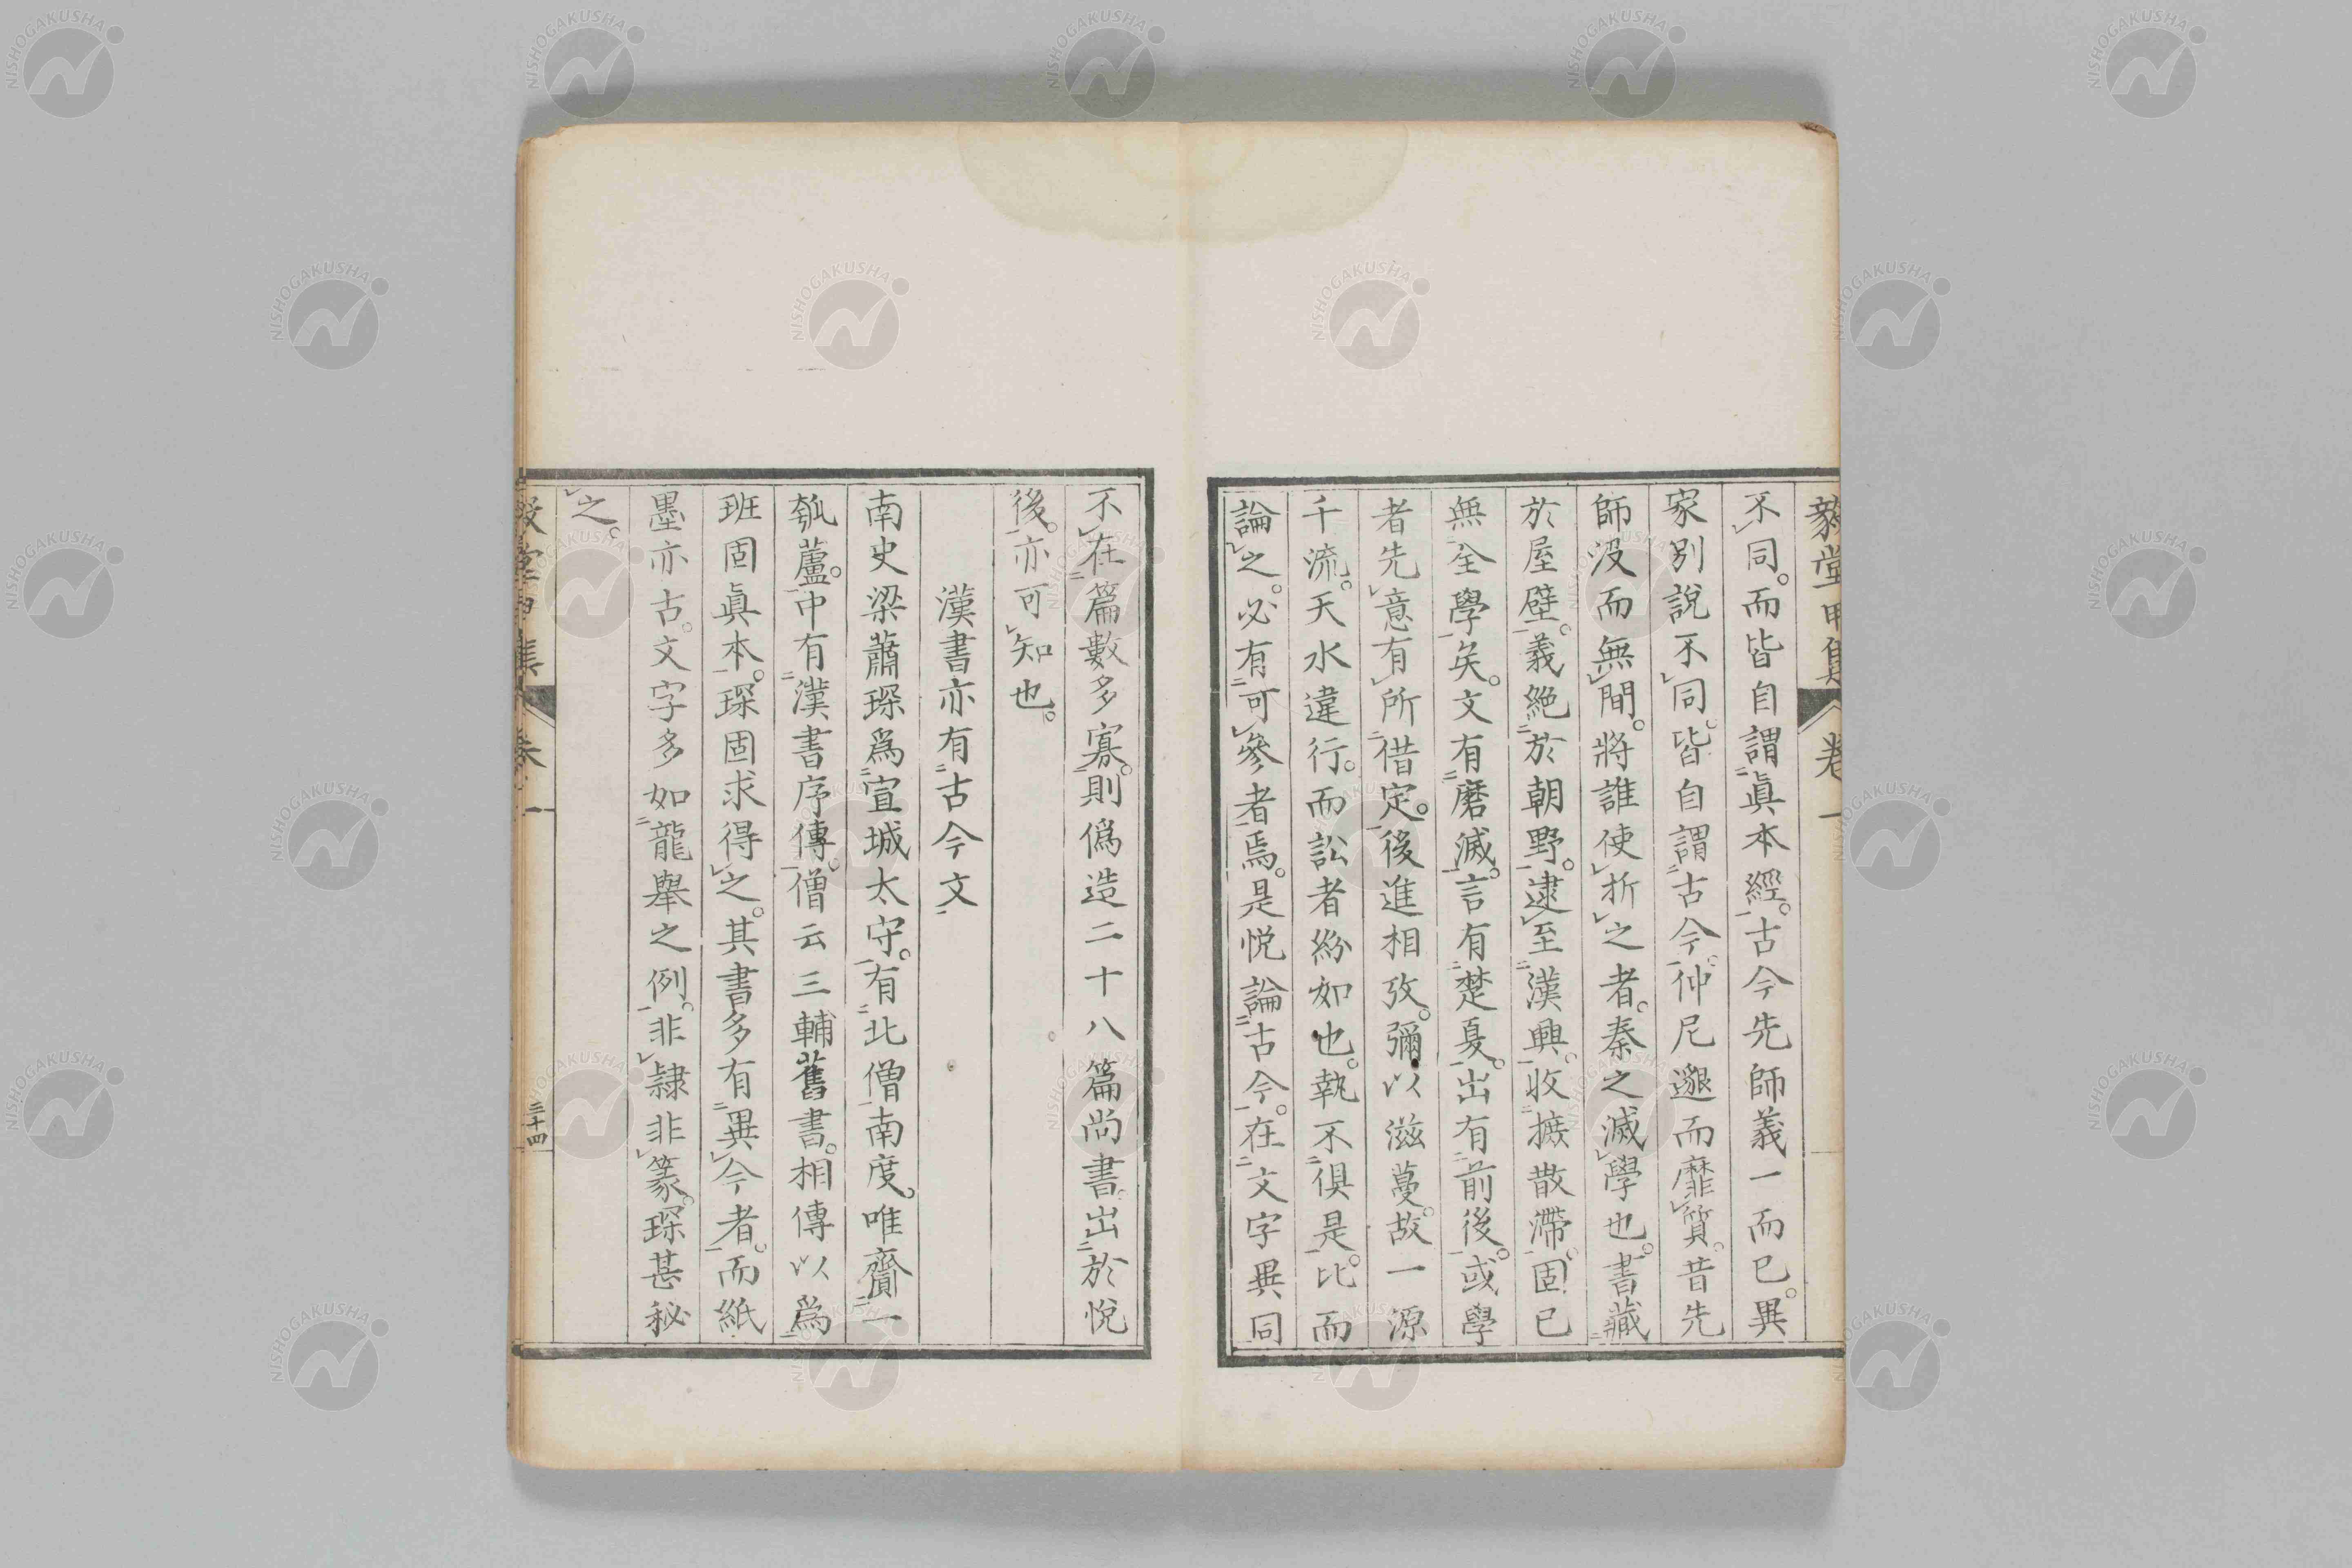 毅堂甲集 卷一
不同。而皆自謂眞本經。古今先師義一而已。異
家別說不同。皆自謂古今。仲尼邈而靡質。昔先
師沒而無閒。將誰使折之者。秦之滅學也。書藏
於屋壁。義絶於朝野。逮至漢興。收摭散滯。固已
無全學矣。文有磨滅。言有楚夏。出有前後。或學
者先意有所借定。後進相攷。彌以滋蔓。故一源
千流。天水違行。而訟者紛如也。執不俱是。比而
論之。必有可參者焉。是悅論古今。在文字異同
不在篇數多寡。則僞造二十八篇尚書。出於悅
後。亦可知也。
漢書亦有古今文
南史梁蕭琛爲宣城太守。有北僧南度。唯齎一
瓠蘆。中有漢書序傳。僧云三輔舊書。相傳以爲
班固眞本。琛固求得之。其書多有異今者。而紙
墨亦古。文字多如龍舉之例。非隷非篆。琛甚秘
之。
毅堂甲集 卷一 三十四
NISHOGAKUSHA